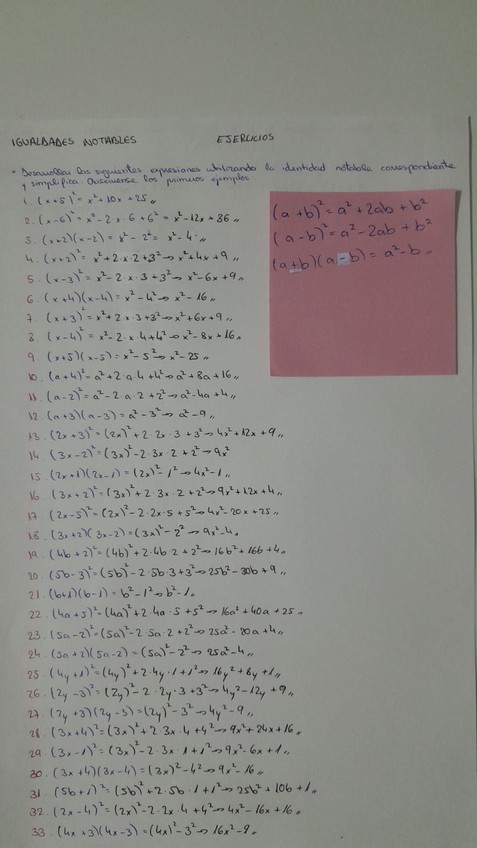 IGUALDADES NOTABLES EJERCICIOS
• Desarrollar las siguientes expresiones utilizando la identidad notable correspondiente
y simplifica. Obsérvense los primeros ejemplos.
1. (x+5)² = x² + 10x + 25 „
2. (x-6)² = x² - 2 · x · 6 + 6² = x² - 12x + 36 „
3. (x+2)(x-2) = x² - 2² = x² - 4 „
4. (x+2)² = x² + 2 · x · 2 + 3² → x² + 4x + 9 „
5. (x-3)² = x² - 2 · x · 3 + 3² → x² - 6x + 9 „
6. (x+4)(x-4) = x² - 4² → x² - 16 „
7. (x+3)² = x² + 2 · x · 3 + 3² → x² + 6x + 9 „
8. (x-4)² = x² - 2 · x · 4 + 4² → x² - 8x + 16 „
9. (x+5)(x-5) = x² - 5² → x² - 25 „
10. (a+4)² - a² + 2 · a · 4 + 4² → a² + 8a + 16 „
11. (a-2)² = a² - 2 · a · 2 + 2² → a² - 4a + 4 „
12. (a+3)(a-3) = a² - 3² → a² - 9 „
13. (2x+3)² = (2x)² + 2 · 2x · 3 + 3² → 4x² + 12x + 9 „
14. (3x-2)² = (3x)² - 2 · 3x · 2 + 2² → 9x²
15. (2x+1)(2x-1) = (2x)² - 1² → 4x² - 1 „
16. (3x+2)² = (3x)² + 2 · 3x · 2 + 2² → 9x² + 12x + 4 „
17. (2x-5)² - (2x)² - 2 · 2x · 5 + 5² → 4x² - 20x + 25 „
18. (3x+2)(3x-2) = (3x)² - 2² → 9x² - 4 „
19. (4b+2)² = (4b)² + 2 · 4b · 2 + 2² → 16b² + 16b + 4 „
20. (5b-3)² = (5b)² - 2 · 5b · 3 + 3² → 25b² - 30b + 9 „
21. (b+1)(b-1) = b² - 1² → b² - 1 „
22. (4a+5)² - (4a)² + 2 · 4a · 5 + 5² → 16a² + 40a + 25 „
23. (5a-2)² = (5a)² - 2 · 5a · 2 + 2² → 25a² - 20a + 4 „
24. (5a+2)(5a-2) = (5a)² - 2² → 25a² - 4 „
25. (4y+1)² = (4y)² + 2 · 4y · 1 + 1² → 16y² + 8y + 1 „
26. (2y-3)² = (2y)² - 2 · 2y · 3 + 3² → 4y² - 12y + 9 „
27. (2y+3)(2y-3) = (2y)² - 3² → 4y² - 9 „
28. (3x+4)² = (3x)² + 2 · 3x · 4 + 4² → 9x² + 24x + 16 „
29. (3x-1)² = (3x)² - 2 · 3x · 1 + 1² → 9x² - 6x + 1 „
30. (3x+4)(3x-4) = (3x)² - 4² → 9x² - 16 „
31. (5b+1)² = (5b)² + 2 · 5b · 1 + 1² → 25b² + 10b + 1 „
32. (2x-4)² = (2x)² - 2 · 2x · 4 + 4² → 4x² - 16x + 16 „
33. (4x+3)(4x-3) = (4x)² - 3² → 16x² - 9 „
(a+b)² = a² + 2ab + b²
(a-b)² = a² - 2ab + b²
(a+b)(a-b) = a² - b „